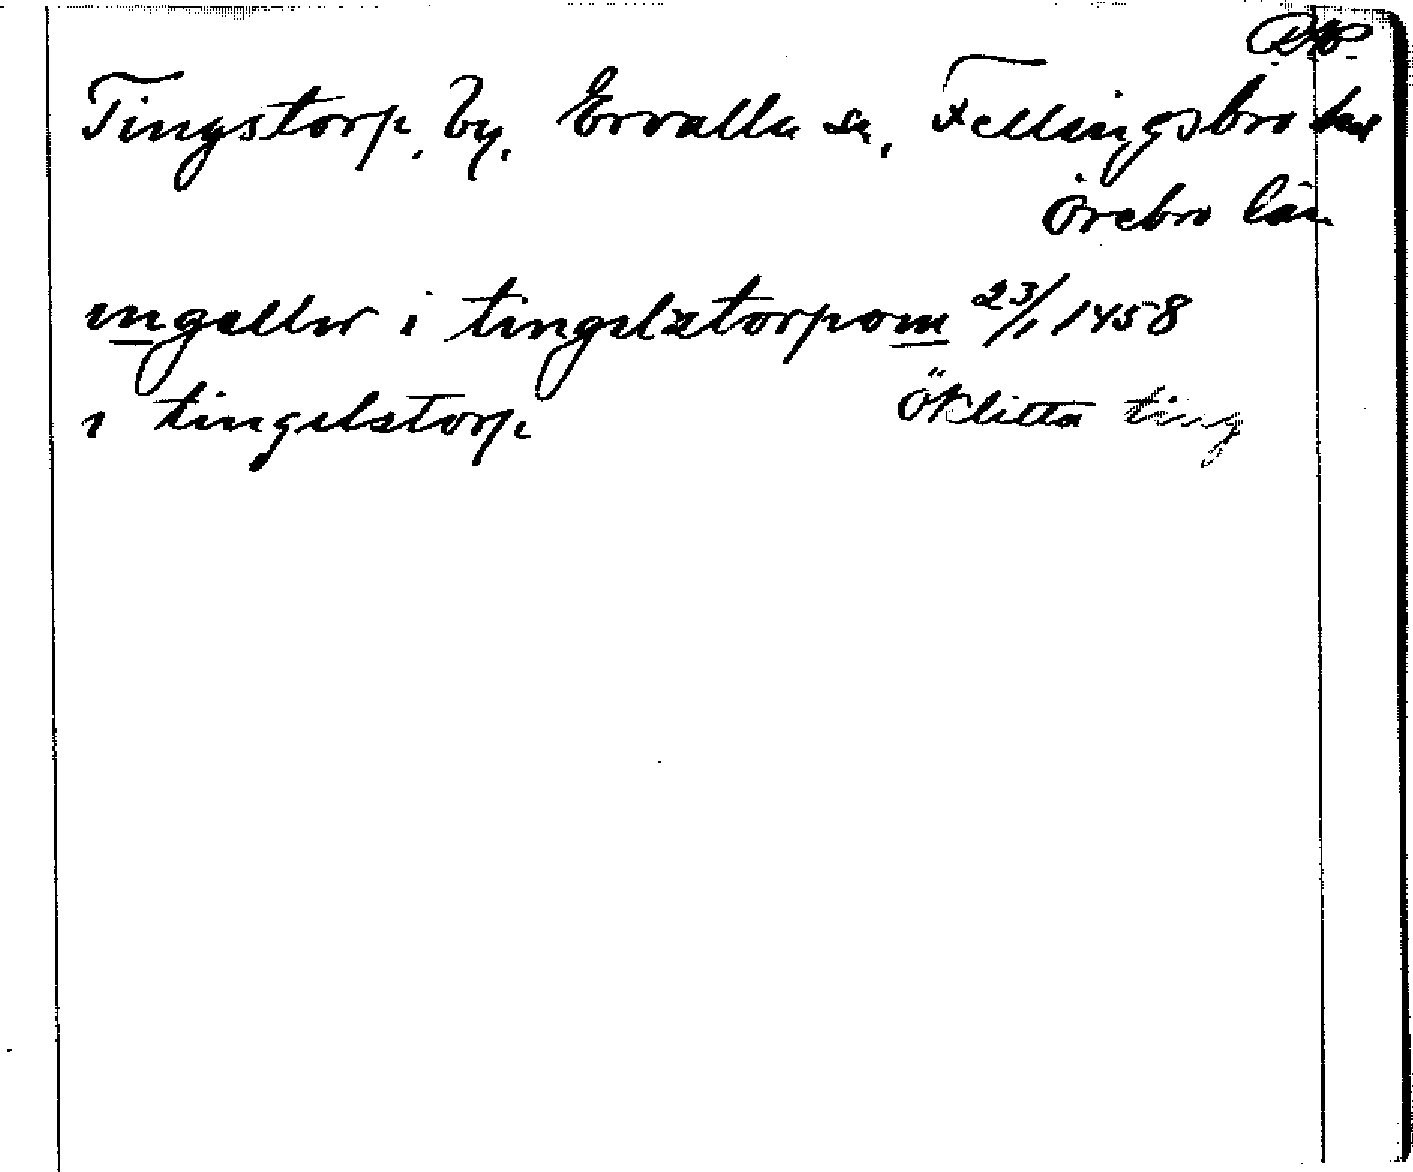 Tingstorp, by, Ervalla sn, Fellingsbro hd
Örebro län
ingeller i tingelstorpom 23/1 1458
i tingelstorp Öklitta ting